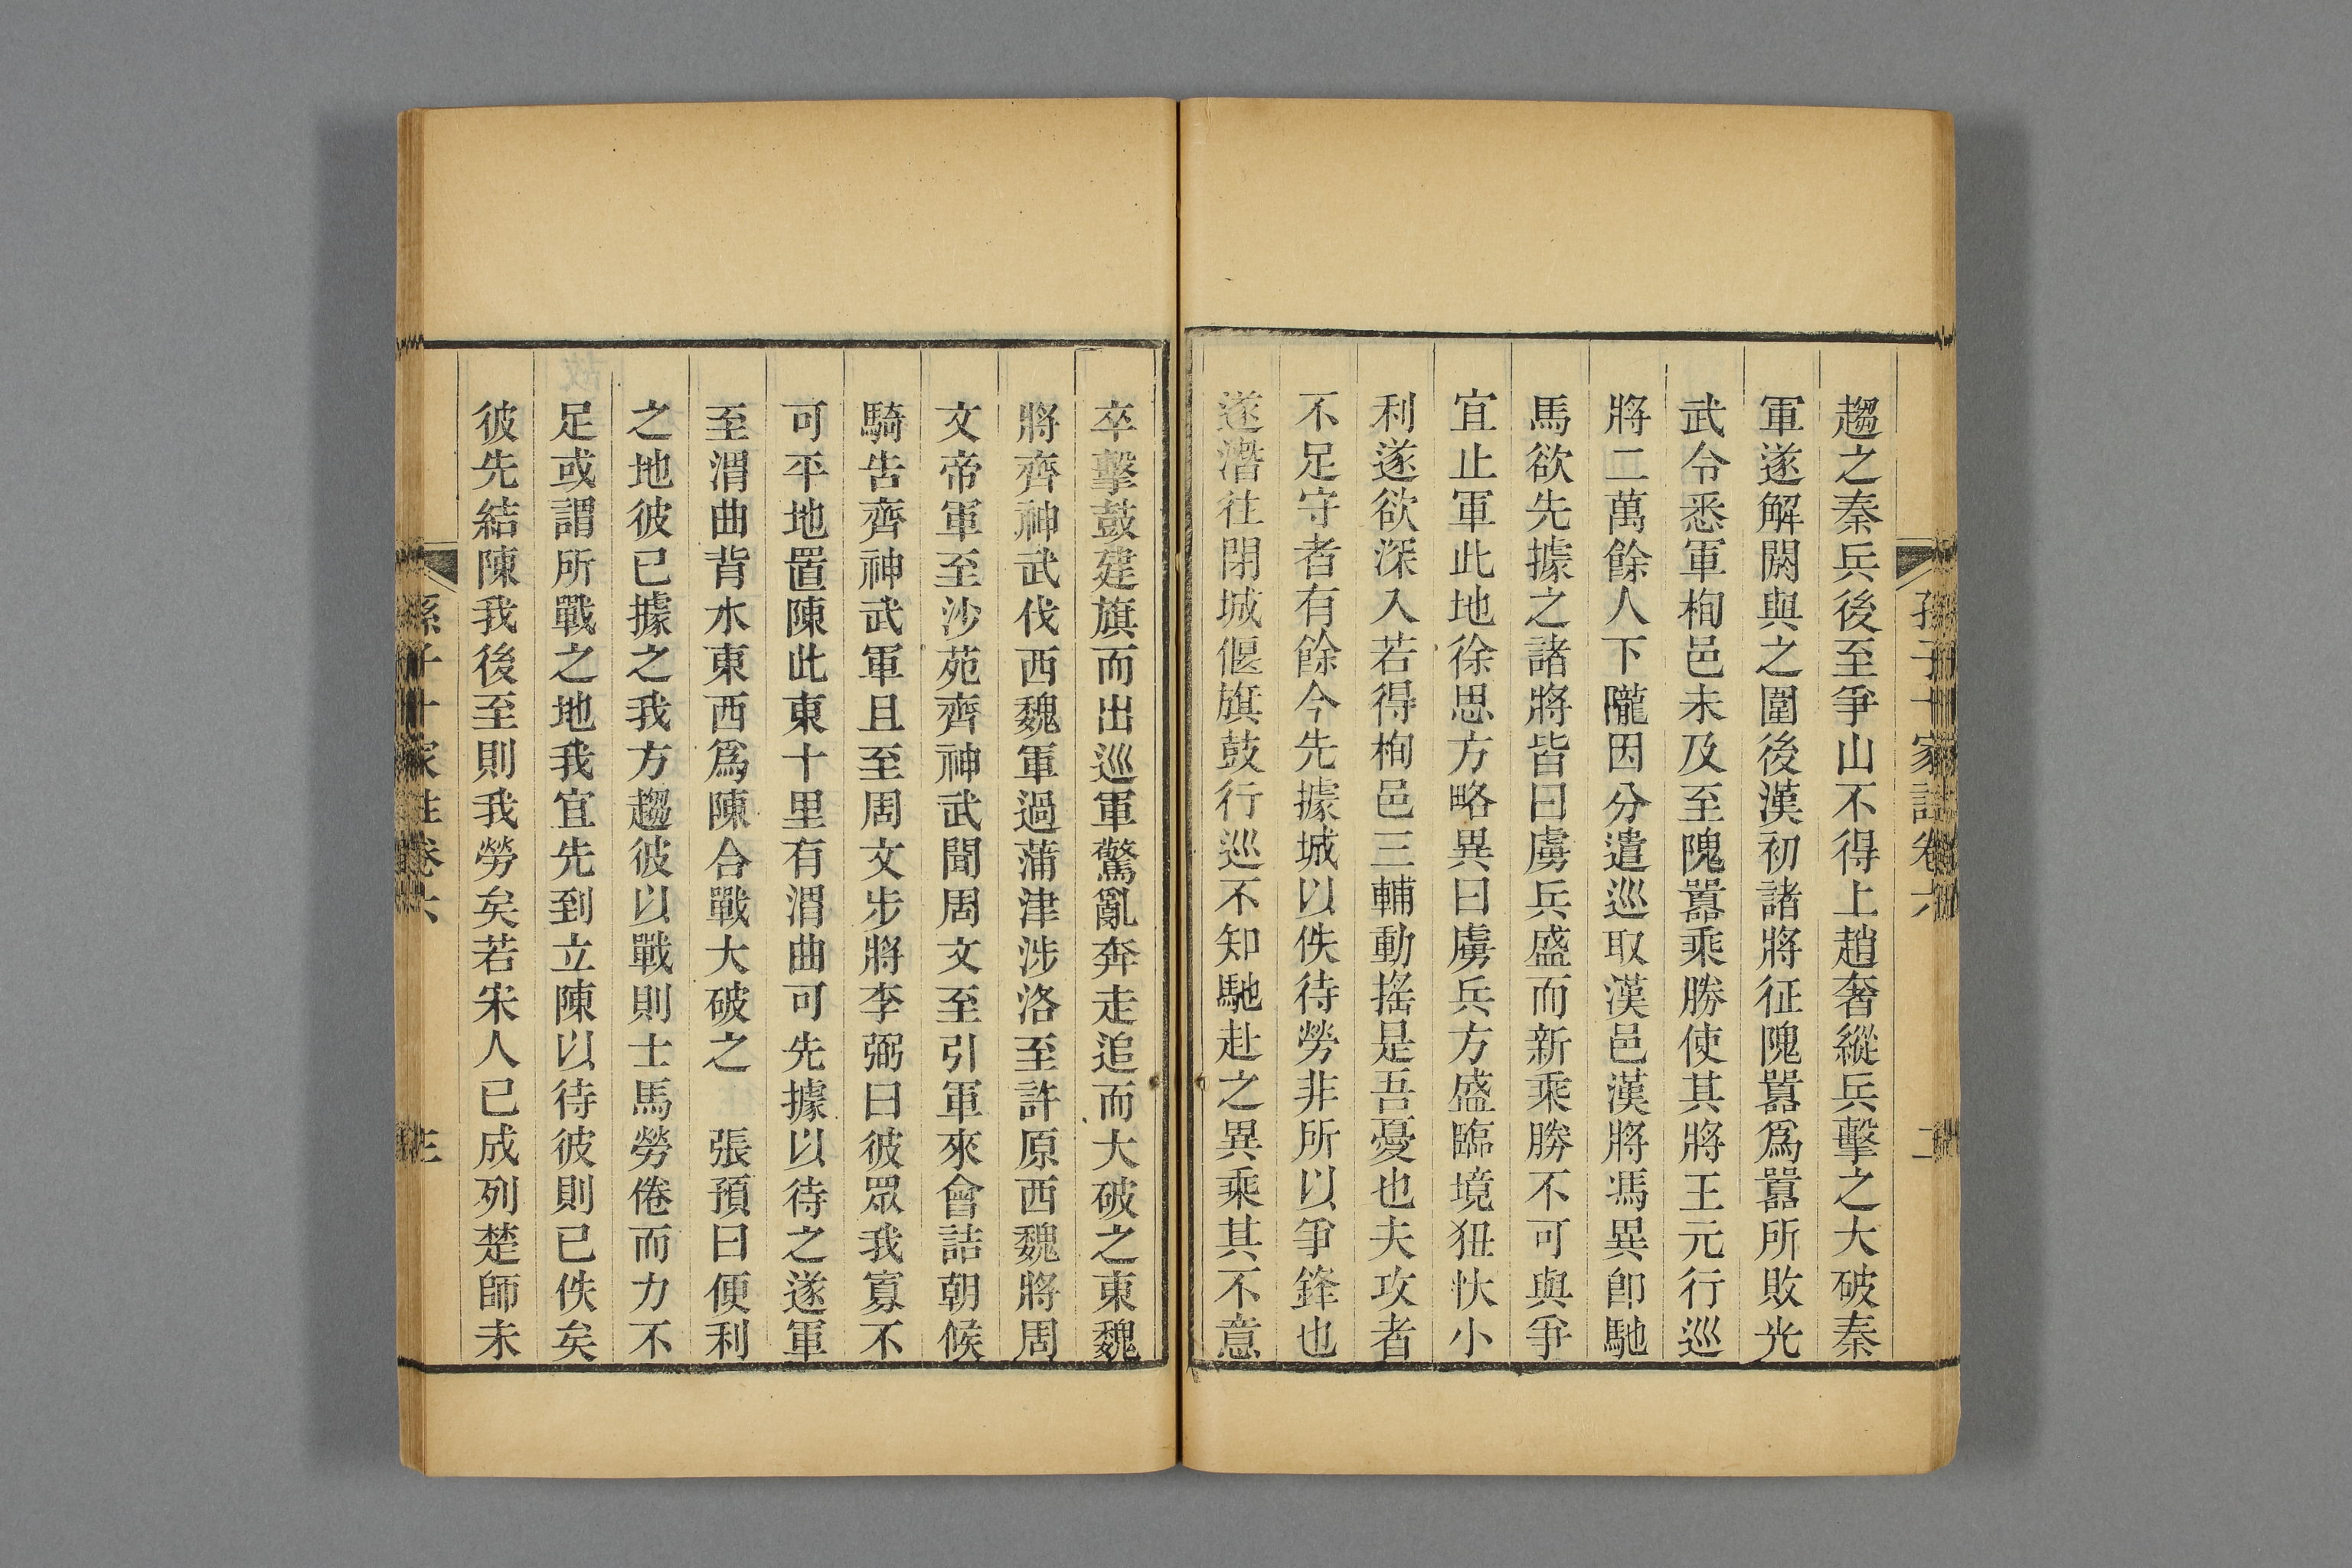 孫子十家註卷六
二
趨之秦兵後至爭山不得上趙奢縱兵擊之大破秦
軍遂解閼與之圍後漢初諸將征隗囂爲囂所敗光
武令悉軍栒邑未及至隗囂乘勝使其將王元行巡
將二萬餘人下隴因分遣巡取漢邑漢將馮異卽馳
馬欲先據之諸將皆曰虜兵盛而新乘勝不可與爭
宜止軍此地徐思方略異曰虜兵方盛臨境狃忕小
利遂欲深入若得栒邑三輔動搖是吾憂也夫攻者
不足守者有餘今先據城以佚待勞非所以爭鋒也
遂潛往閉城偃旗鼓行巡不知馳赴之異乘其不意
卒擊鼓建旗而出巡軍驚亂奔走追而大破之東魏
將齊神武伐西魏軍過蒲津涉洛至許原西魏將周
文帝軍至沙苑齊神武聞周文至引軍來會詰朝候
騎告齊神武軍且至周文步將李弼曰彼眾我寡不
可平地置陳此東十里有渭曲可先據以待之遂軍
至渭曲背水東西爲陳合戰大破之 張預曰便利
之地彼已據之我方趨彼以戰則士馬勞倦而力不
足或謂所戰之地我宜先到立陳以待彼則已佚矣
彼先結陳我後至則我勞矣若宋人已成列楚師未
孫子十家註卷六
三